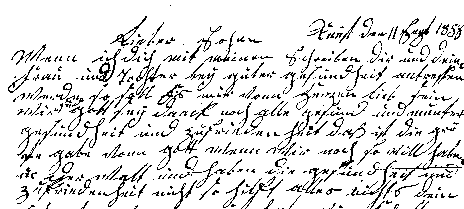 Lieber Sohn den 11 Sept 1858
Wenn ich dich mit meinen Schreiben dir und deine
frau und Tochter bey guter gesundheit antreffen
werden so soll es mir vom Herzen lieb sein
wir gott sey danck noch alle gesund und munter
gesundheit und zufriedenheit daß ist die grö
te gabe vonn gott wenn wir noch so vill haben
in der Welt und haben die gesundheit und
zufriedenheit nicht so hilft alles nichts dein